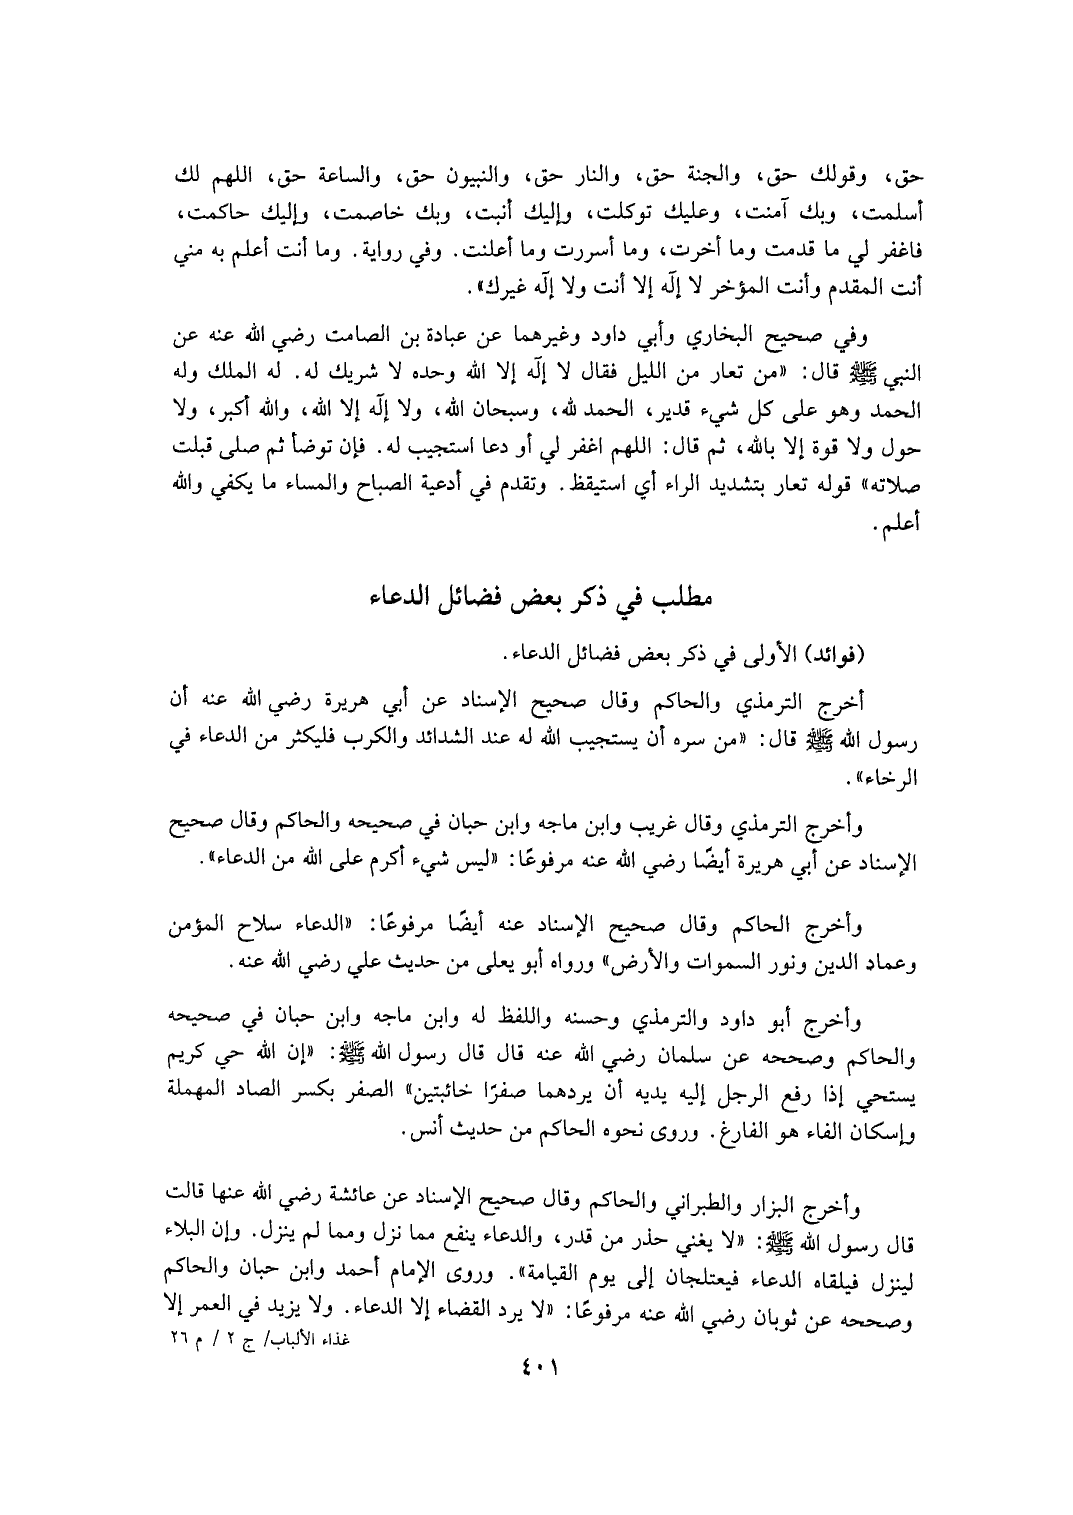 حق، وقولك حق، والجنة حق، والنار حق، والنبيون حق، والساعة حق، اللهم لك
أسلمت، وبك آمنت، وعليك توكلت، وإليك أنبت، وبك خاصمت، وإليك حاكمت،
فاغفر لي ما قدمت وما أخرت، وما أسررت وما أعلنت. وفي رواية. وما أنت أعلم به مني
أنت المقدم وأنت المؤخر لا إلٓه إلا أنت ولا إلٓه غيرك».
وفي صحيح البخاري وأبي داود وغيرهما عن عبادة بن الصامت رضي الله عنه عن
النبي ﷺ قال: «من تعار من الليل فقال لا إلٓه إلا الله وحده لا شريك له. له الملك وله
الحمد وهو على كل شيء قدير، الحمد لله، وسبحان الله، ولا إلٓه إلا الله، والله أكبر، ولا
حول ولا قوة إلا بالله، ثم قال: اللهم اغفر لي أو دعا استجيب له. فإن توضأ ثم صلى قبلت
صلاته» قوله تعار بتشديد الراء أي استيقظ. وتقدم في أدعية الصباح والمساء ما يكفي والله
أعلم.
مطلب في ذكر بعض فضائل الدعاء
(فوائد) الأولى في ذكر بعض فضائل الدعاء.
أخرج الترمذي والحاكم وقال صحيح الإسناد عن أبي هريرة رضي الله عنه أن
رسول الله ﷺ قال: «من سره أن يستجيب الله له عند الشدائد والكرب فليكثر من الدعاء في
الرخاء».
وأخرج الترمذي وقال غريب وابن ماجه وابن حبان في صحيحه والحاكم وقال صحيح
الإسناد عن أبي هريرة أيضًا رضي الله عنه مرفوعًا: «ليس شيء أكرم على الله من الدعاء».
وأخرج الحاكم وقال صحيح الإسناد عنه أيضًا مرفوعًا: «الدعاء سلاح المؤمن
وعماد الدين ونور السموات والأرض» ورواه أبو يعلى من حديث علي رضي الله عنه.
وأخرج أبو داود والترمذي وحسنه واللفظ له وابن ماجه وابن حبان في صحيحه
والحاكم وصححه عن سلمان رضي الله عنه قال قال رسول الله ﷺ: «إن الله حي كريم
يستحي إذا رفع الرجل إليه يديه أن يردهما صفرًا خائبتين» الصفر بكسر الصاد المهملة
وإسكان الفاء هو الفارغ. وروى نحوه الحاكم من حديث أنس.
وأخرج البزار والطبراني والحاكم وقال صحيح الإسناد عن عائشة رضي الله عنها قالت
قال رسول الله ﷺ: «لا يغني حذر من قدر، والدعاء ينفع مما نزل ومما لم ينزل. وإن البلاء
لينزل فيلقاه الدعاء فيعتلجان إلى يوم القيامة». وروى الإمام أحمد وابن حبان والحاكم
وصححه عن ثوبان رضي الله عنه مرفوعًا: «لا يرد القضاء إلا الدعاء. ولا يزيد في العمر إلا
غذاء الألباب/ ج ٢ / م ٢٦
٤٠١